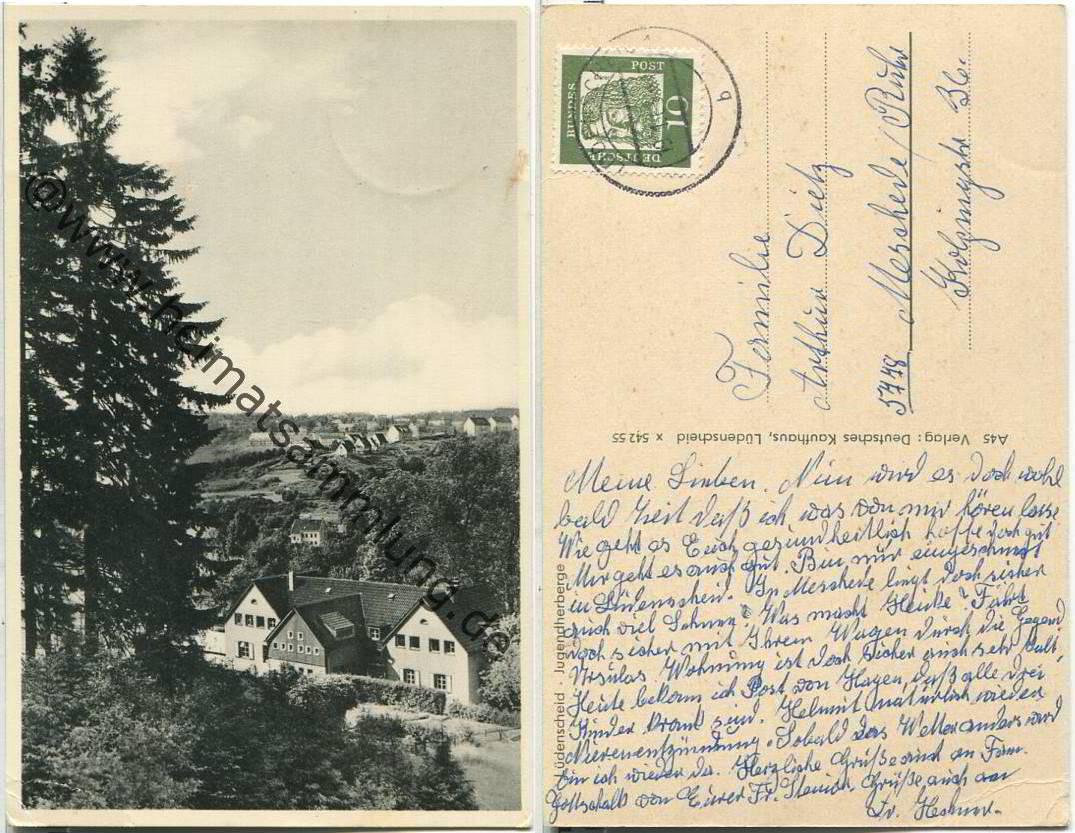 @www.heimatsammlung.de
DEUTSCHE
BUNDES
POST
10
Familie
Arthur Dietz
5778 Meschede/Ruhr
Kolpingstr 36.
A45 Verlag: Deutsches Kaufhaus, Lüdenscheid x 542 55
Lüdenscheid Jugendherberge
Meine Lieben. Nun wird es doch wohl
bald Zeit daß ich was von mir hören lasse
Wie geht es Euch gesundheitlich hoffe doch gut
Mir geht es auch gut. Bin nur eingeschneit
in Lüdenscheid. In Meschede liegt doch sicher
auch viel Schnee? Was macht Heike? Fährt
doch sicher mit Ihrem Wagen durch die Gegend
Ursulas Wohnung ist doch sicher auch sehr kalt,
Heute bekam ich Post von Hagen, daß alle drei
Kinder krank sind. Helmut natürlich wieder
Nierenentzündung. Sobald das Wetter anders wird
bin ich wieder da. Herzliche Grüße auch an Fam.
Gottschalk von Eurer Fr. Grüße auch an
Fr.